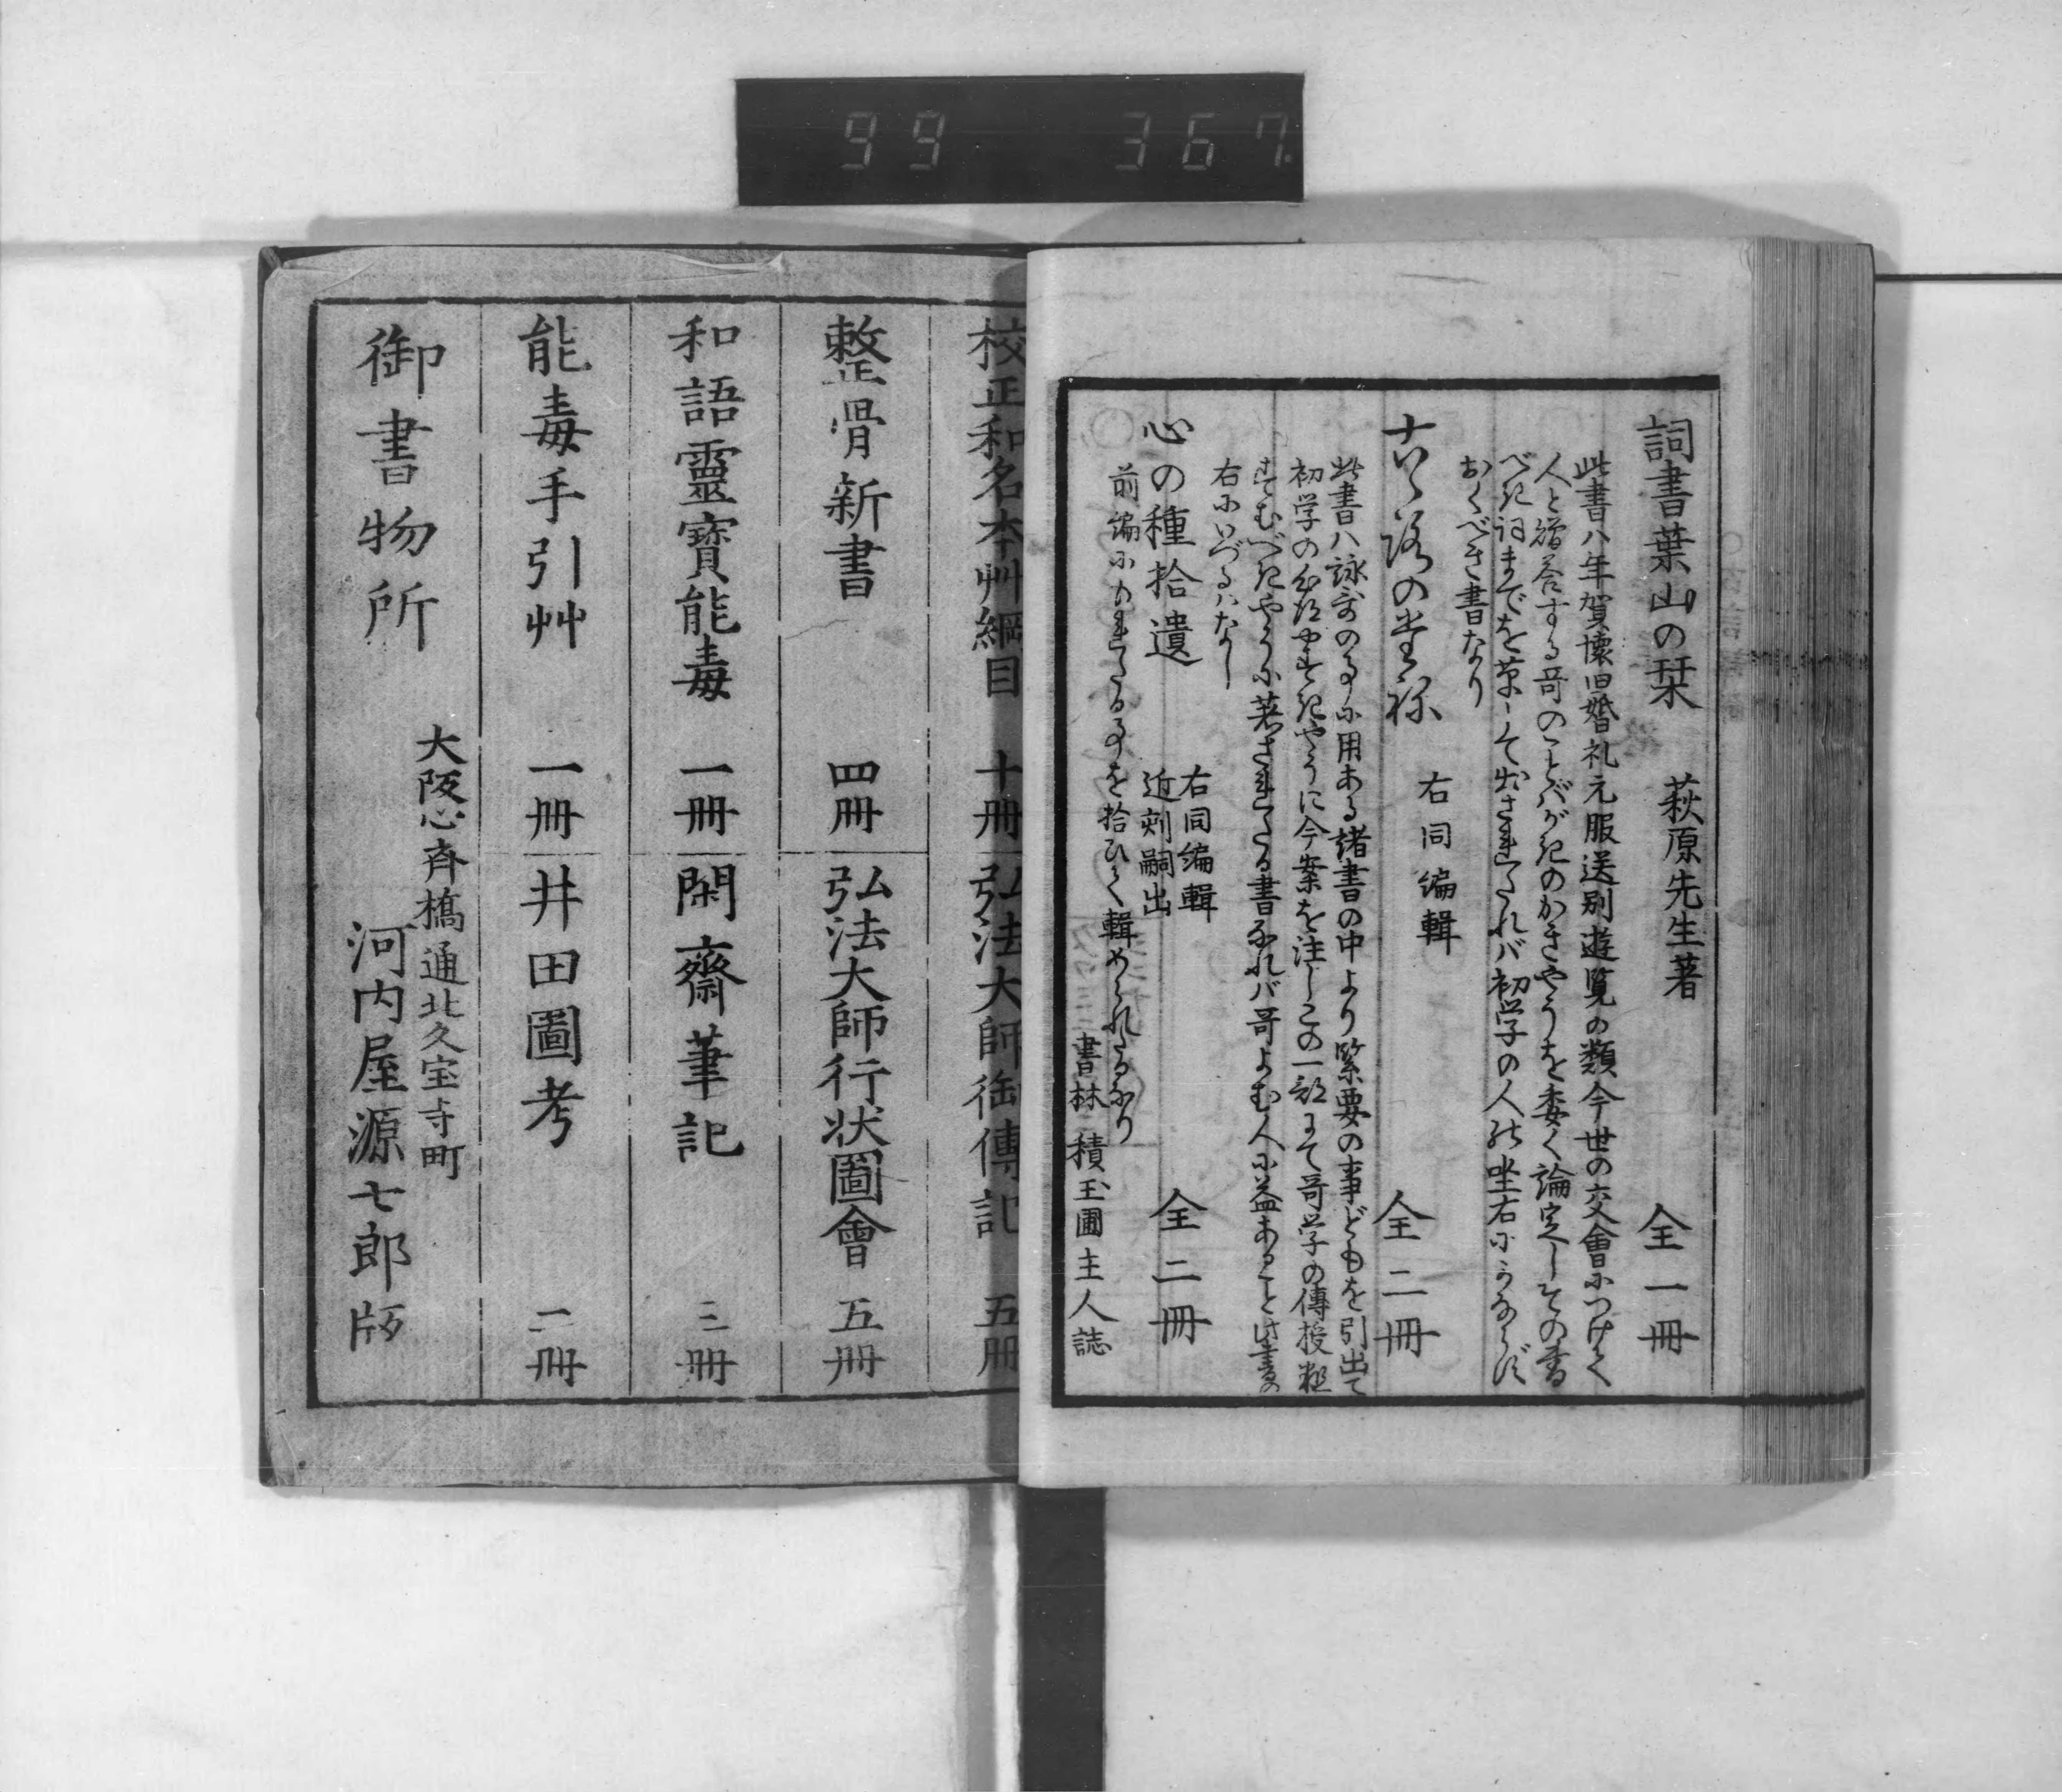 99 367
詞書葉山の栞 萩原先生著 全一冊
此書ハ年賀懐旧婚礼元服送別遊覧の類今世の交會につけて
人と贈答する哥のことバがきのかきやうを委く論定しその書
べき詞までを草して出されたれバ初学の人の坐右にかならず
おくべき書なり
古ゝ路の多年 右同編輯 全二冊
此書ハ詠哥の事に用ある諸書の中より緊要の事どもを引出て
初学の
やすきやうに今案を注しこの一部にて哥学の傳授
すむべきやうに著されたる書なれバ哥よむ人に益あること此書の
右にいづるハなし
心の種拾遺 右同編輯 近刻嗣出 全二冊
前編にもれたる事を拾ひて輯められたるなり
書林 積玉圃主人誌
校正和名本艸綱目 十冊 弘法大師御傳記 五冊
整骨新書 四冊 弘法大師行状圖會 五冊
和語靈寶能毒 一冊 閑齋筆記 三冊
能毒手引艸 一冊 井田圖考 二冊
御書物所 大阪心斉橋通北久宝寺町
河内屋源七郎版